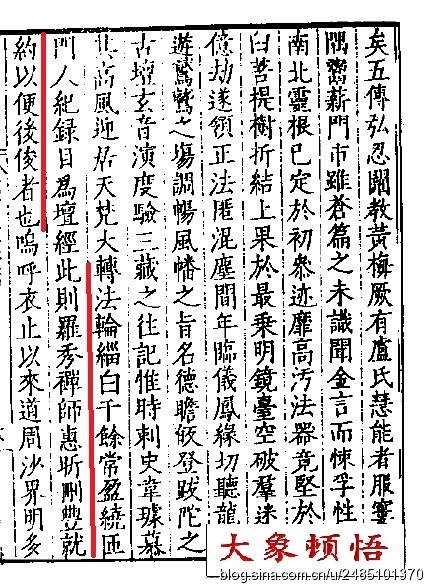 矣五傳弘忍闡教黃梅厥有盧氏慧能者服竁
隅鬻薪門市雖蒼篇之未識聞金言而悚孚性
南北靈根已定於初叅迹靡高汚法器竟堅於
臼菩提樹折結上果於最乗明鏡臺空破羣迷
億劫遂領正法匿混塵間年臨儀鳳緣切聽龍
遊鷲鷲之塲調暢風幡之旨名德瞻皈登跋陀之
古壇玄音演度驗三藏之往記惟時刺史韋璩慕
其高風迎居天梵大轉法輪緇白千餘常盈繞匝
門人紀録目為壇經此則羅秀禪師惠昕刪豐就
約以便後俊者也嗚呼衣止以來道周沙界明多
大象顿悟
blog.sina.com.cn/u/2485101370